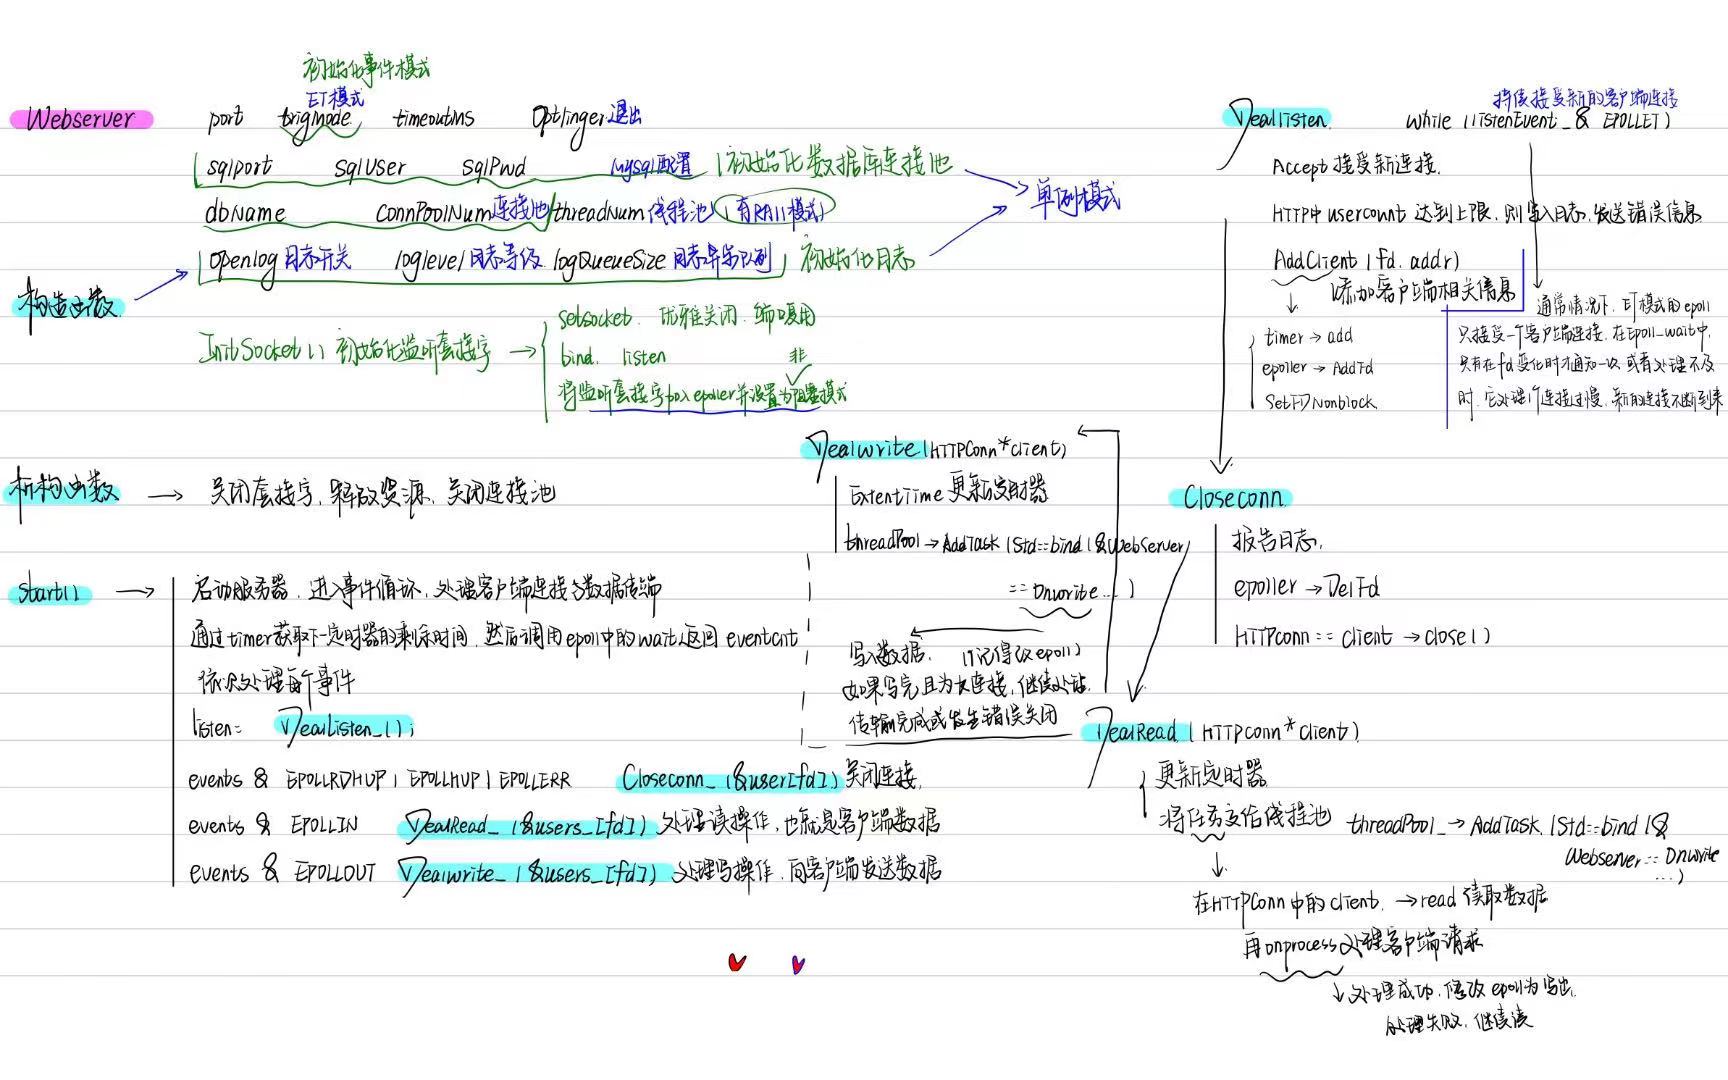 初始化事件模式
ET模式
Webserver port trigmode timeoutms Optlinger 退出
sqlport sqlUser sqlPwd mysql配置 初始化数据库连接池
dbName connPoolNum 连接池 threadNum 线程池 (有RAII模式)
单例模式
openlog 日志开关 loglevel 日志等级 logQueueSize 日志异步队列 初始化日志
构造函数
InitSocket() 初始化监听套接字
setsocket. 优雅关闭. 端口复用
bind. listen
非
将监听套接字加入epoller并设置为阻塞模式
析构函数 → 关闭套接字, 释放资源、关闭连接池
start() →
启动服务器, 进入事件循环, 处理客户端连接与数据传输
通过timer获取下一定时器的剩余时间, 然后调用epoll中的wait返回eventcnt
依次处理每个事件
listen: DealListen_();
events & EPOLLRDHUP | EPOLLHUP | EPOLLERR Closeconn_(&user[fd]) 关闭连接,
events & EPOLLIN DealRead_(&users_[fd]) 处理读操作, 也就是客户端数据
events & EPOLLOUT Dealwrite_(&users_[fd]) 处理写操作, 向客户端发送数据
Dealwrite(HTTPConn*client)
ExtentTime 更新定时器
threadPool → AddTask (Std::bind(&WebServer
::Onwrite...)
写入数据. (记得改epoll)
如果写完且为长连接, 继续处理.
传输完成或发生错误关闭
持续接受新的客户端连接
Deallisten. while (listenEvent_ & EPOLLET)
Accept 接受新连接.
HTTP中usercount 达到上限, 则写入日志, 发送错误信息
AddClient (fd. addr)
添加客户端相关信息
timer → add
epoller → AddFd
SetFDNonblock
通常情况下, ET模式的epoll
只接受一个客户端连接, 在epoll_wait中,
只有在fd变化时才通知一次 或者处理不及
时. 它处理个连接过慢, 新的连接不断到来
Closeconn
报告日志,
epoller → DelFd
HTTPconn:: client → close()
DealRead (HTTPconn*client)
更新定时器
将任务交给线程池 threadPool_ → AddTask (Std::bind(&
Webserver:: Onwrite
...)
在HTTPConn中的client. → read 读取数据
再onprocess处理客户端请求
处理成功, 修改epoll为写出,
处理失败, 继续读